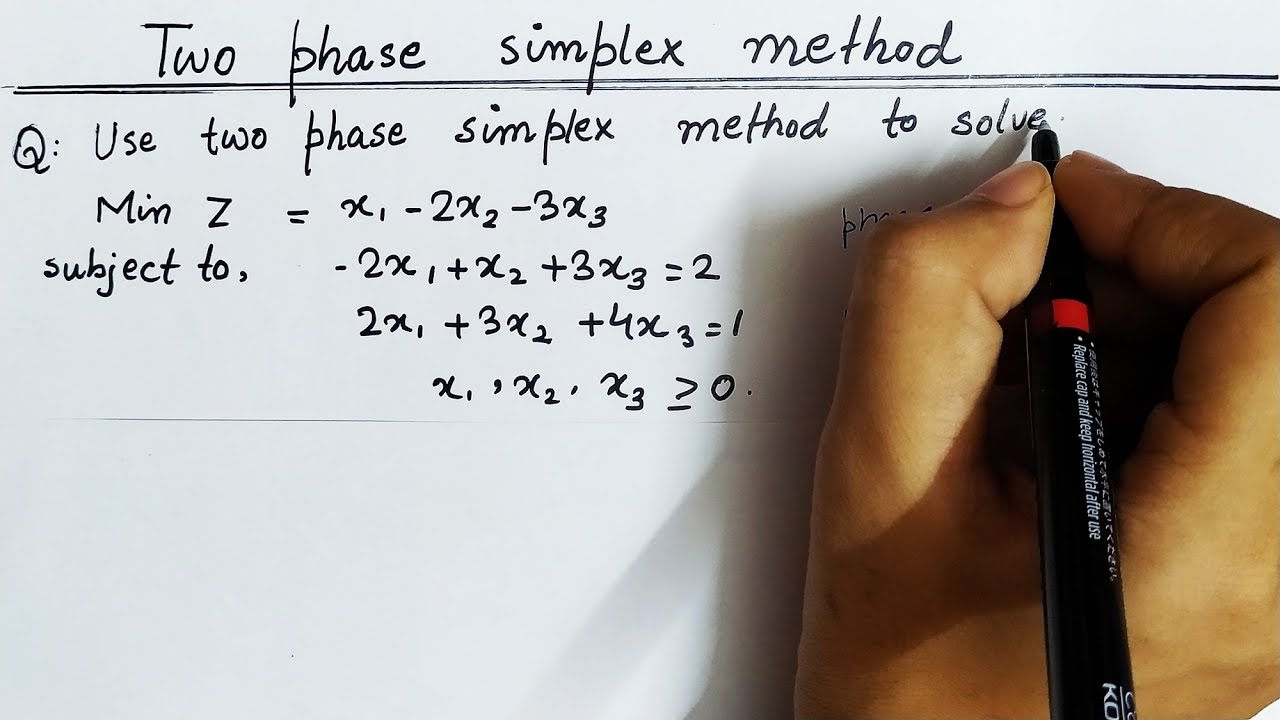 Two phase simplex method
Q: Use two phase simplex method to solve
Min Z = x₁ - 2x₂ - 3x₃
subject to, -2x₁ + x₂ + 3x₃ = 2
2x₁ + 3x₂ + 4x₃ = 1
x₁, x₂, x₃ ≥ 0.
Replace cap and keep horizontal after use